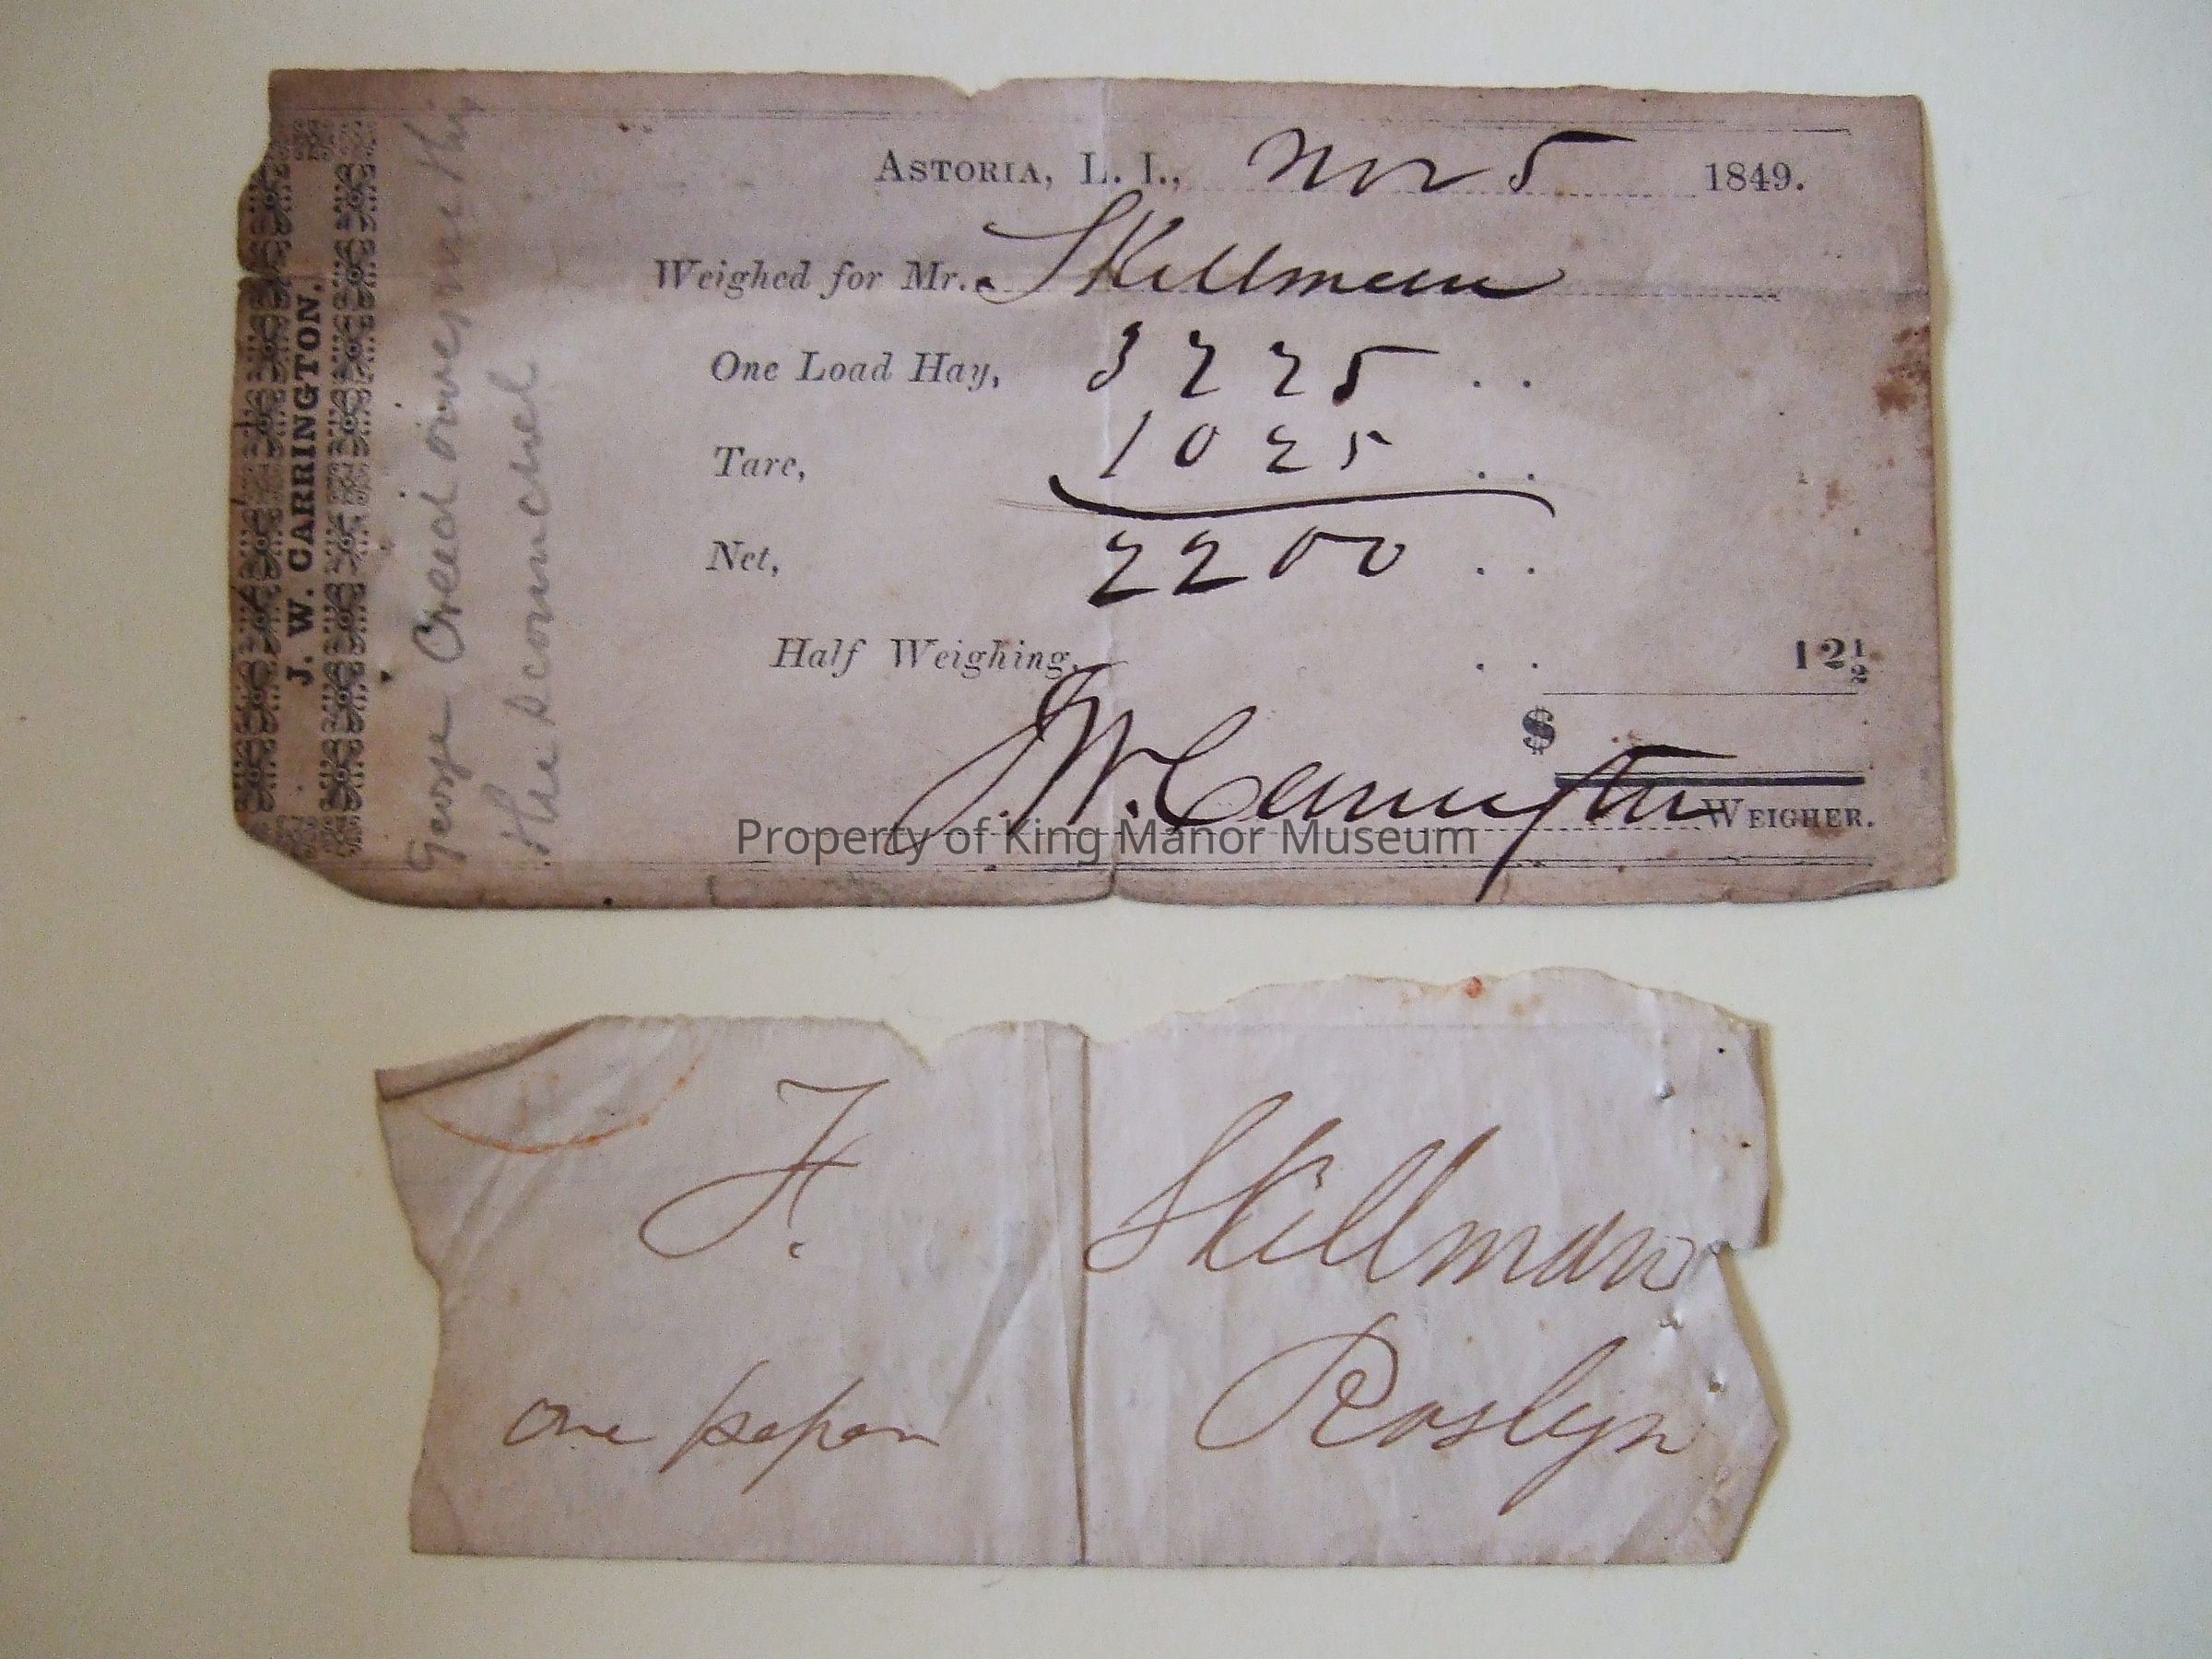 J. W. CARRINGTON.
George Creed over this
the
ASTORIA, L. I., Nov 5 1849.
Weighed for Mr. Skillman
One Load Hay, 3225 . .
Tare, 1025 . .
Net, 2200 . .
Half Weighing, . . 12½
$
J. W. Carrington WEIGHER.
Property of King Manor Museum
F. Skillman
one paper Roslyn